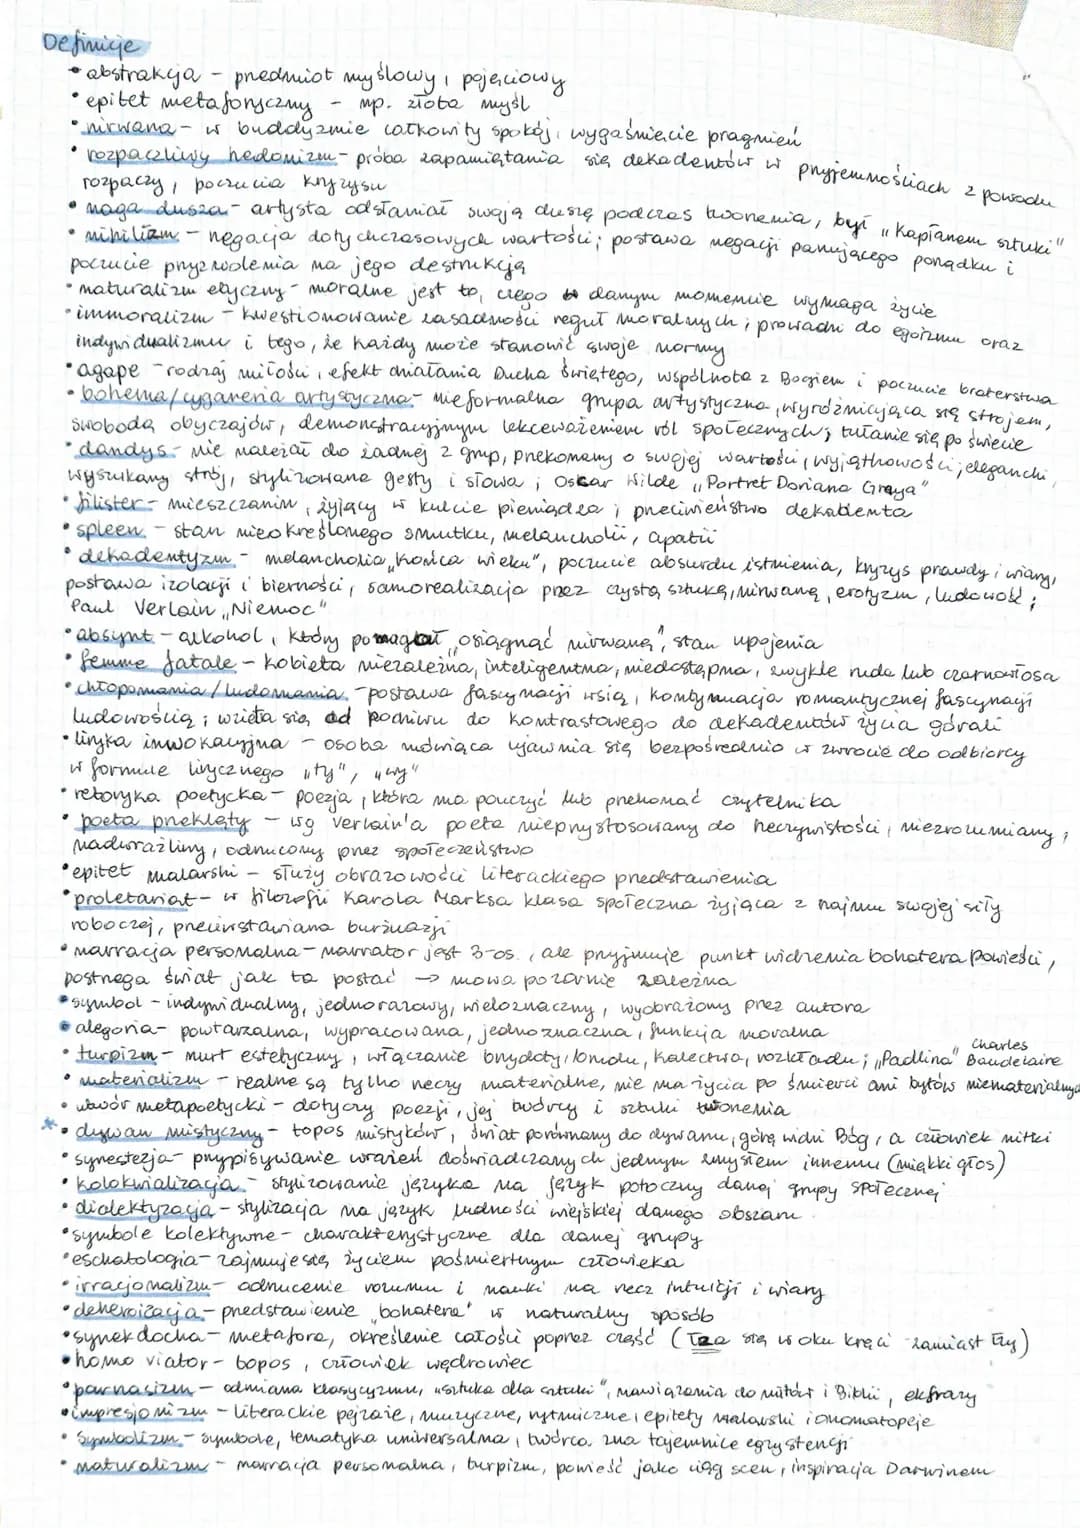 Definicje
• abstrakcja – przedmiot myślowy, pojęciowy
• epitet metaforyczny – np. złota myśl
• nirwana – w buddyzmie całkowity spokój, wygaśnięcie pragnień
• rozpaczliwy hedonizm – próba zapamiętania się dekadentów w przyjemnościach z powodu
rozpaczy, poczucia kryzysu
• naga dusza – artysta odsłaniał swoją duszę podczas tworzenia, był „Kapłanem sztuki"
• nihilizm – negacja dotychczasowych wartości; postawa negacji panującego porządku i
poczucie przyzwolenia na jego destrukcję
• naturalizm etyczny – moralne jest to, czego w danym momencie wymaga życie
• immoralizm – kwestionowanie zasadności reguł moralnych; prowadzi do egoizmu oraz
indywidualizmu i tego, że każdy może stanowić swoje normy
• agape – rodzaj miłości, efekt działania Ducha Świętego, wspólnota z Bogiem i poczucie braterstwa
• bohema/cyganeria artystyczna – nieformalna grupa artystyczna, wyróżniająca się strojem,
swobodą obyczajów, demonstracyjnym lekceważeniem ról społecznych; tułanie się po świecie
• dandys – nie należał do żadnej z grup, przekonany o swojej wartości, wyjątkowości; elegancki,
wyszukany strój, stylizowane gesty i słowa; Oskar Wilde „Portret Doriana Graya"
• filister – mieszczanin, żyjący w kulcie pieniądza; przeciwieństwo dekadenta
• spleen – stan nieokreślonego smutku, melancholii, apatii
• dekadentyzm – melancholia „końca wieku", poczucie absurdu istnienia, kryzys prawdy i wiary,
postawa izolacji i bierności, samorealizacja przez czystą sztukę, nirwanę, erotyzm, ludowość;
Paul Verlain „Niemoc"
• absynt – alkohol, który pomagał „osiągnąć nirwanę", stan upojenia
• femme fatale – kobieta niezależna, inteligentna, niedostępna, zwykle ruda lub czarnowłosa
• chłopomania/ludomania – postawa fascynacji wsią, kontynuacja romantycznej fascynacji
ludowością; wzięła się od podziwu do kontrastowego do dekadentów życia górali
• liryka inwokacyjna – osoba mówiąca ujawnia się bezpośrednio w zwrocie do odbiorcy
w formule lirycznego „ty", „wy"
• retoryka poetycka – poezja, która ma pouczyć lub przekonać czytelnika
• poeta przeklęty – wg Verlain'a poeta nieprzystosowany do rzeczywistości, niezrozumiany,
nadwrażliwy, odrzucony przez społeczeństwo
• epitet malarski – służy obrazowości literackiego przedstawienia
• proletariat – w filozofii Karola Marksa klasa społeczna żyjąca z najmu swojej siły
roboczej, przeciwstawiana burżuazji
• narracja personalna – narrator jest 3-os., ale przyjmuje punkt widzenia bohatera powieści,
postrzega świat jak ta postać → mowa pozornie zależna
• symbol – indywidualny, jednorazowy, wieloznaczny, wyobrażony przez autora
• alegoria – powtarzalna, wypracowana, jednoznaczna, funkcja moralna
• turpizm – nurt estetyczny, włączanie brzydoty, brudu, kalectwa, rozkładu; „Padlina" Charles Baudelaire
• materializm – realne są tylko rzeczy materialne, nie ma życia po śmierci ani bytów niematerialnych
• utwór metapoetycki – dotyczy poezji, jej twórcy i sztuki tworzenia
* • dywan mistyczny – topos mistyków, świat porównany do dywanu, górę widzi Bóg, a człowiek nitki
• synestezja – przypisywanie wrażeń doświadczanych jednym zmysłem innemu (miękki głos)
• kolokwializacja – stylizowanie języka na język potoczny danej grupy społecznej
• dialektyzacja – stylizacja na język ludności wiejskiej danego obszaru
• symbole kolektywne – charakterystyczne dla danej grupy
• eschatologia – zajmuje się życiem pośmiertnym człowieka
• irracjonalizm – odrzucenie rozumu i nauki na rzecz intuicji i wiary
• deheroizacja – przedstawienie „bohatera" w naturalny sposób
• synekdocha – metafora, określenie całości poprzez część (Łza się w oku kręci zamiast łzy)
• homo viator – topos, człowiek wędrowiec
• parnasizm – odmiana klasycyzmu, „sztuka dla sztuki", nawiązania do mitów i Biblii, ekfrazy
• impresjonizm – literackie pejzaże, muzyczne, rytmiczne, epitety malarski i onomatopeje
• symbolizm – symbole, tematyka uniwersalna, twórca zna tajemnice egzystencji
• naturalizm – narracja personalna, turpizm, powieść jako ciąg scen, inspiracja Darwinem